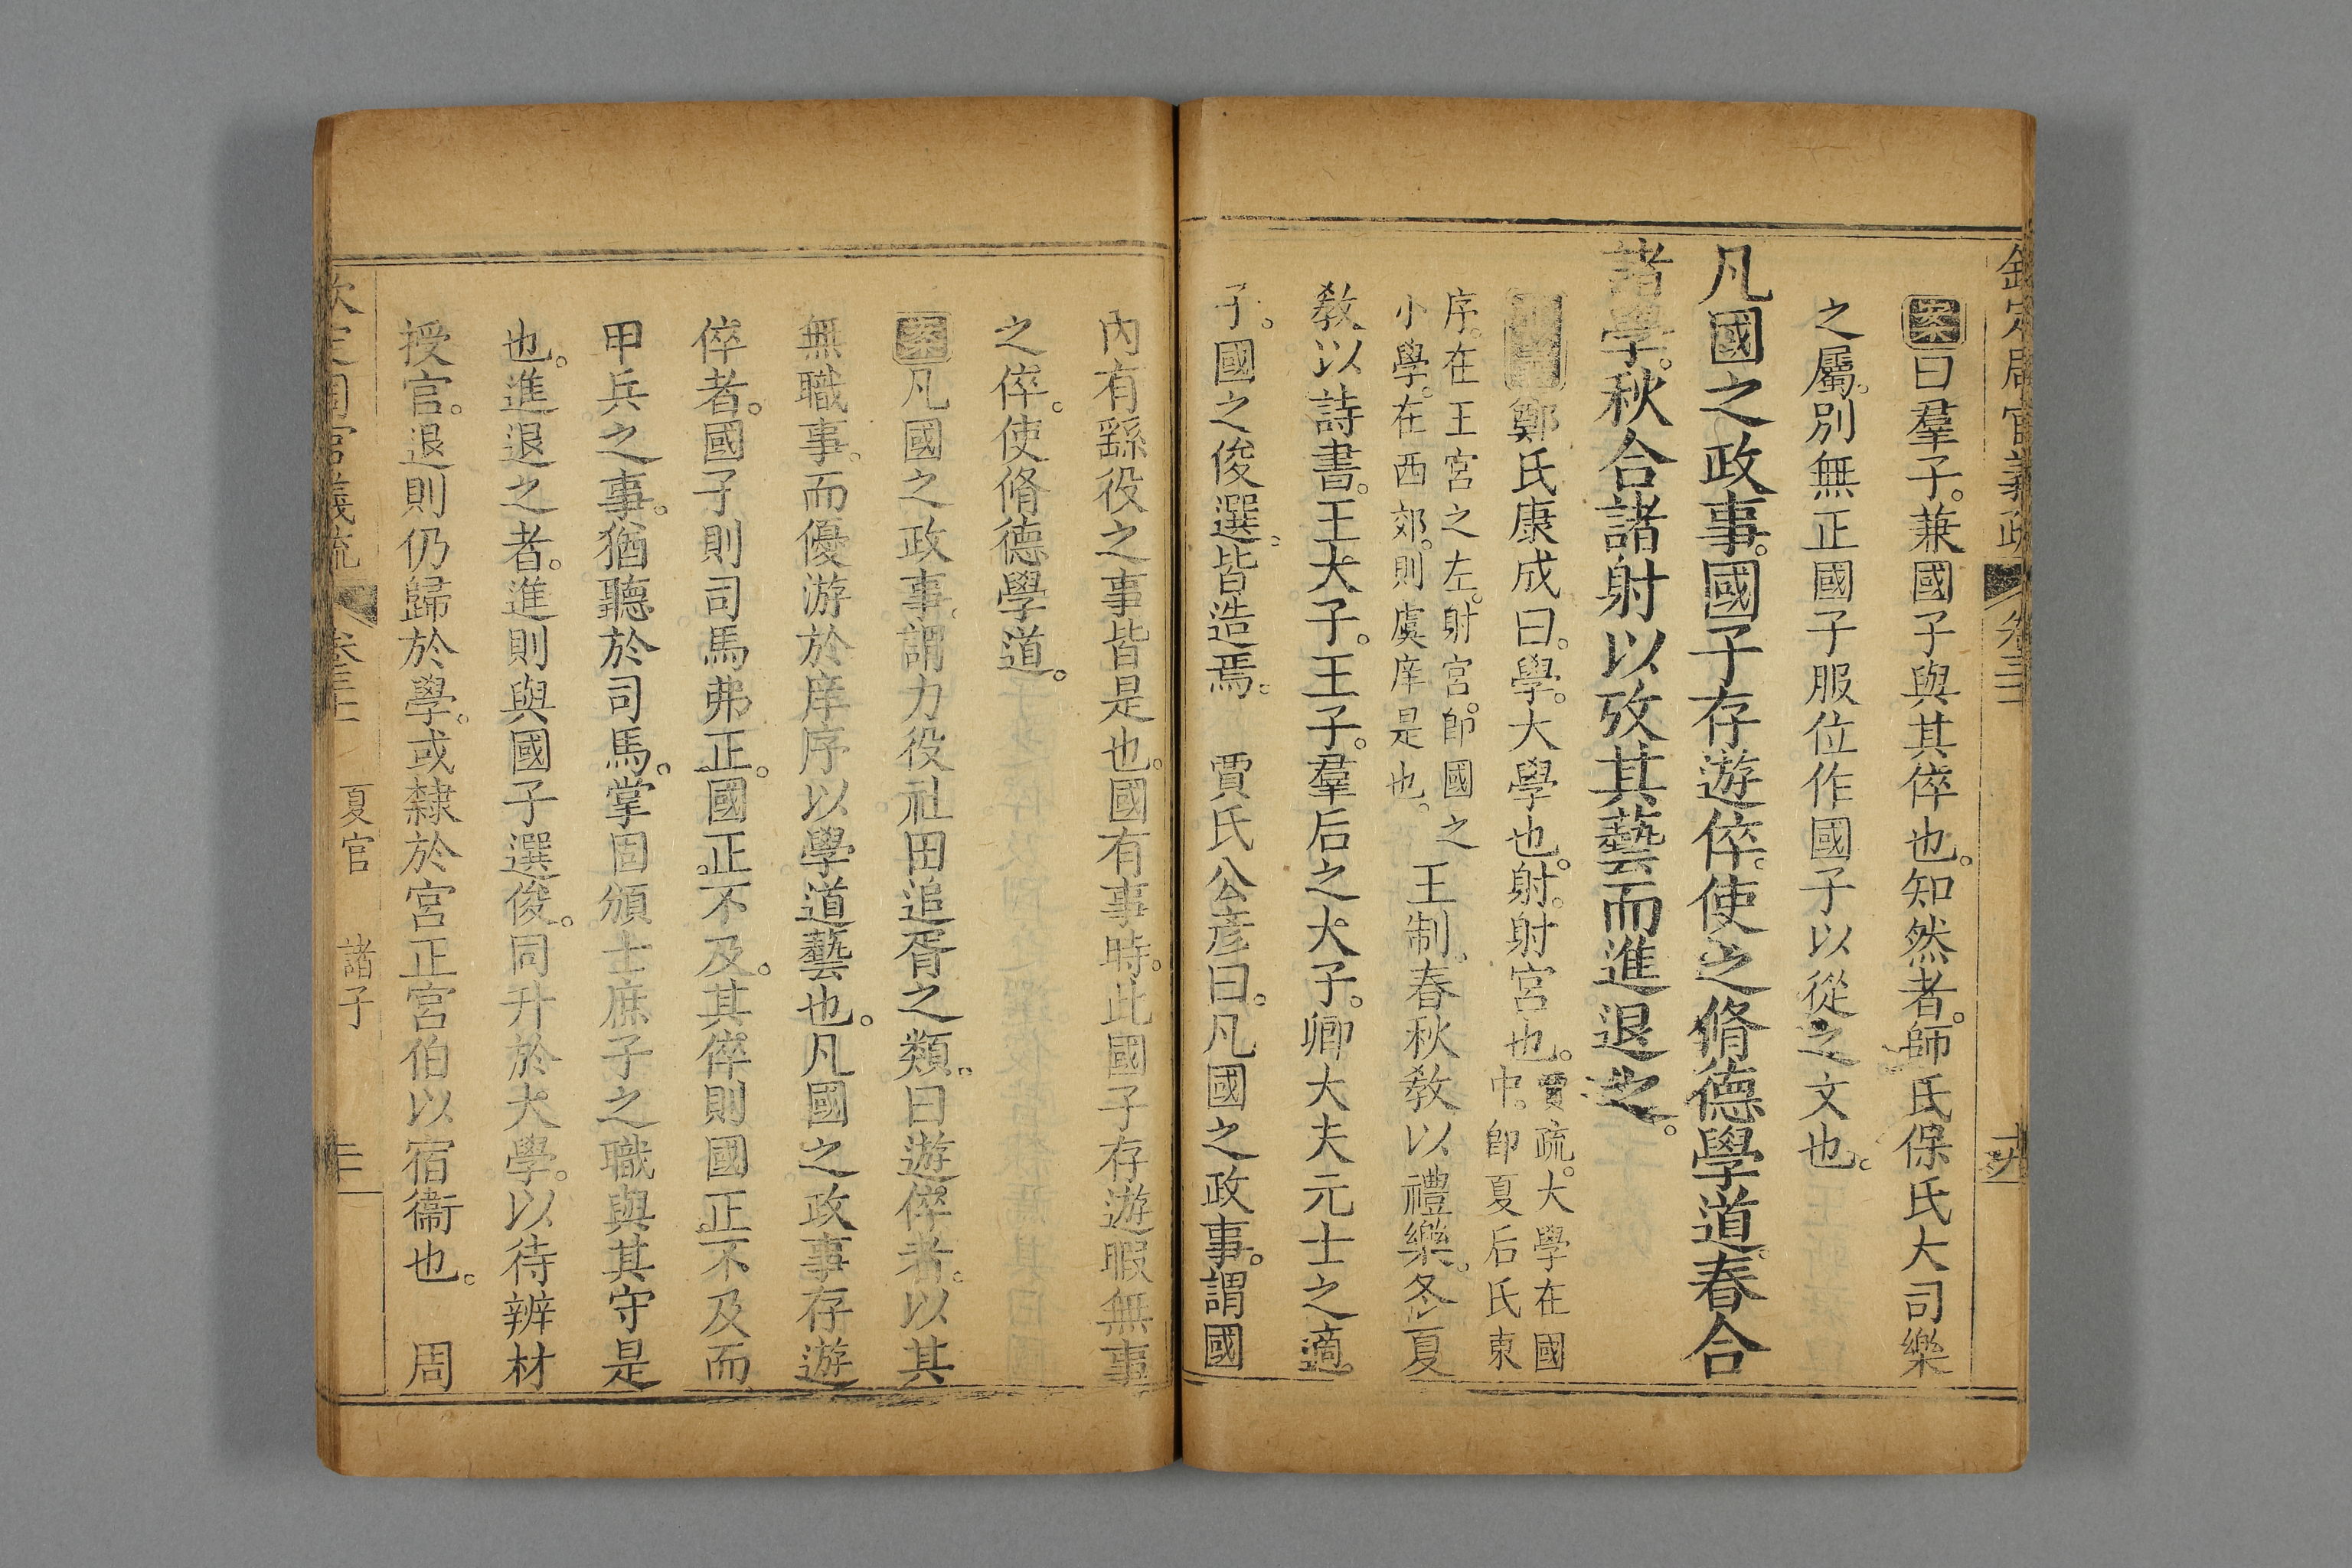 欽定周官義疏 卷三十 十九
案曰羣子。兼國子與其倅也。知然者。師氏保氏大司樂
之屬。別無正國子服位作國子以從之文也。
凡國之政事。國子存遊倅。使之脩德學道。春合
諸學。秋合諸射以攷其藝而進退之。
鄭氏康成曰。學。大學也。射。射宮也。賈疏。大學在國
中。卽夏后氏東
序。在王宮之左。射宮。卽國之
小學。在西郊。則虞庠是也。王制。春秋敎以禮樂。冬夏
敎以詩書。王大子。王子。羣后之大子。卿大夫元士之適
子。國之俊選。皆造焉。 賈氏公彥曰。凡國之政事。謂國
內有繇役之事皆是也。國有事時。此國子存遊暇無事
之倅。使脩德學道。
案凡國之政事。謂力役社田追胥之類。曰遊倅者。以其
無職事。而優游於庠序以學道藝也。凡國之政事存遊
倅者。國子則司馬弗正。國正不及。其倅則國正不及而
甲兵之事。猶聽於司馬。掌固頒士庶子之職與其守是
也。進退之者。進則與國子選俊。同升於大學。以待辨材
授官。退則仍歸於學。或隸於宮正宮伯以宿衞也。 周
欽定周官義疏 卷三十 夏官 諸子 二十